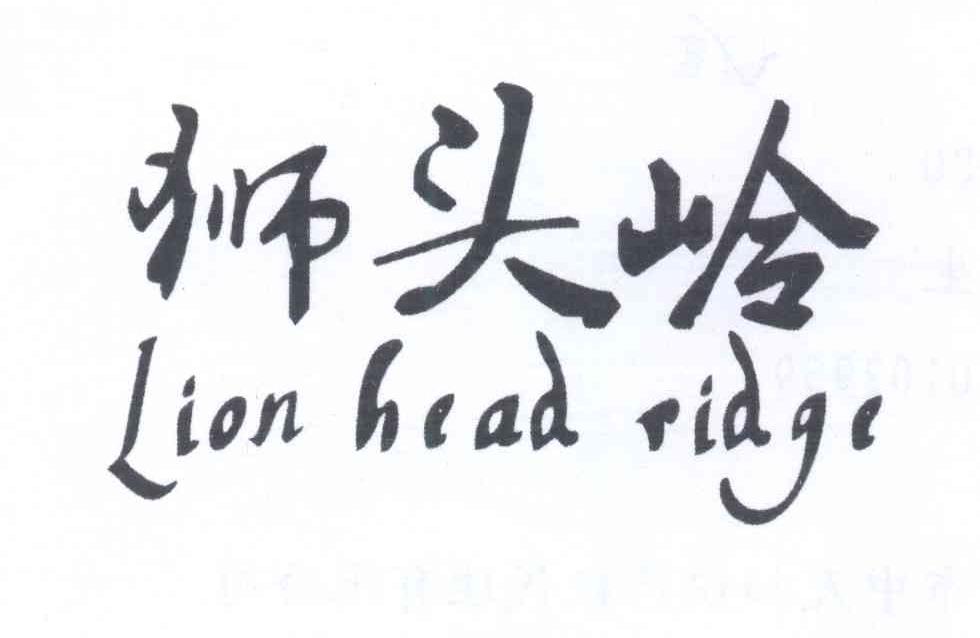 狮头岭
Lion head ridge